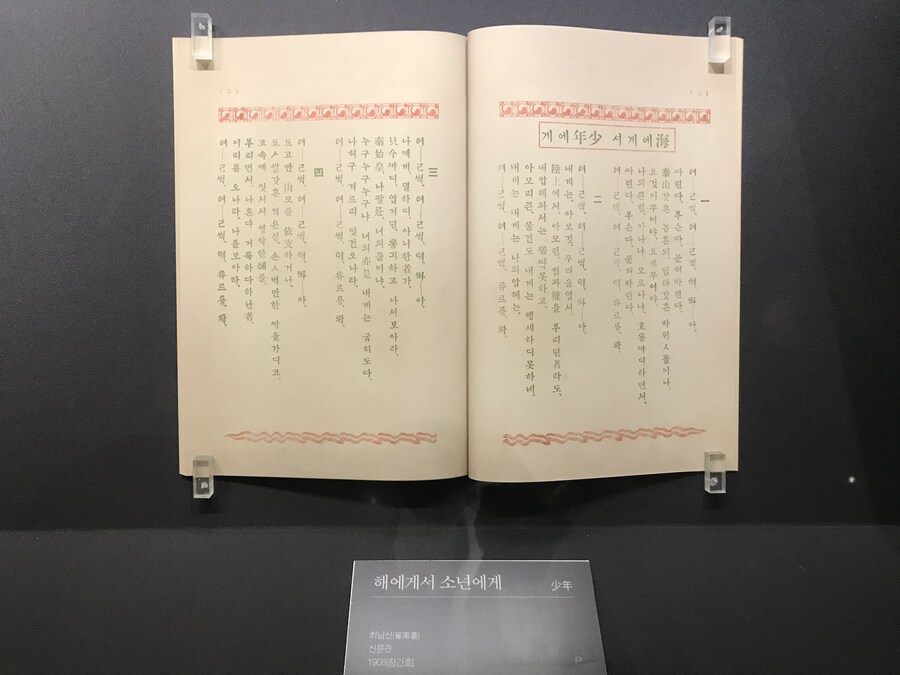 (2)
海에게서 少年에게
一
텨—ㄹ썩, 텨—ㄹ썩, 텩, 쏴—아.
ᄯᅡ린다, 부슨다, 문허바린다,
泰山갓흔 놉흔뫼, 딥턔갓흔 바위ㅅ돌이나,
요것이무어야, 요게무어야,
나의큰힘, 아나냐, 모르나냐, 호통ᄭᅡ디하면서,
ᄯᅡ린다, 부슨다, 문허바린다,
텨—ㄹ썩, 텨—ㄹ썩, 텩, 튜르릉, 콱.
二
텨—ㄹ썩, 텨—ㄹ썩, 텩, 쏴—아.
내게는, 아모것, 두려움업서,
陸上에서, 아모런, 힘과權을 부리던者라도,
내압헤와서는 ᄭᅩᆷᄶᅡᆨ못하고,
아모리큰, 물건도 내게는 행세하디못하네.
내게는 내게는 나의압헤는.
텨—ㄹ썩, 텨—ㄹ썩, 텩, 튜르릉, 콱.
(3)
三
텨—ㄹ썩, 텨—ㄹ썩, 텩, 쏴—아.
나에게, 뎔하디, 아니한者가,
只今ᄭᅡ디, 업거던, 통긔하고 나서보아라.
秦始皇, 나팔륜, 너의들이냐,
누구누구누구냐 너의亦是 내게는 굽히도다,
나허구 겨르리 잇건오나라.
텨—ㄹ썩, 텨—ㄹ썩, 텩, 튜르릉, 콱.
四
텨—ㄹ썩, 텨—ㄹ썩, 텩, 쏴—아.
됴고만 山모를 依支하거나,
됴ㅅ쌀갓흔 뎍은섬, 손ㅅ벽만한 ᄯᅡᆼ을가디고,
고속에 잇서서 영악한톄를,
부리면서, 나혼댜 거룩하다하난者,
이리둄 오나라, 나를보아라.
텨—ㄹ썩, 텨—ㄹ썩, 텩, 튜르릉, 콱.
해에게서 소년에게 少年
최남선(崔南善)
신문관
1908[창간호]